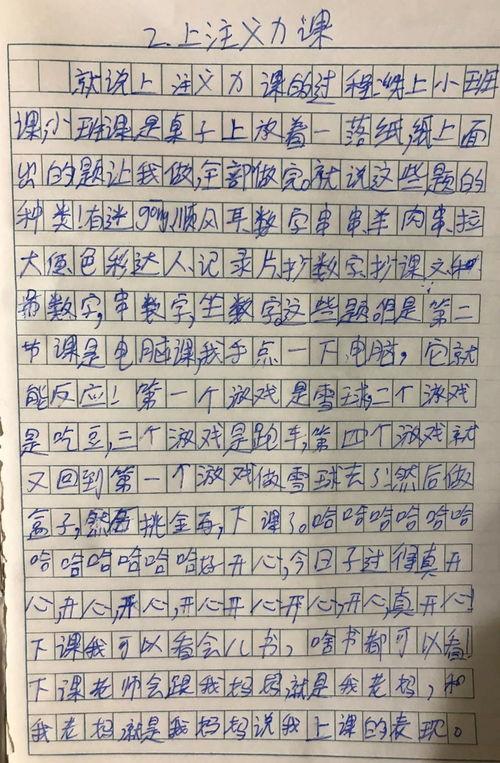 2.上注义力课
就说上注义力课的过程。纸上小班
课,小班课是桌子上放着一落纸,纸上面
出的题让我做,全部做完。就说这些题的
种类!有迷gong,顺风耳,数字串串,羊肉串,拉
大便,色彩达人,记录片,抄数字,抄课文,和
带数字,串数字,坐数字,这些题。但是第二
节课是电脑课,我手点一下电脑,它就
能反应!第一个游戏是雪球,二个游戏
是吃豆,三个游戏是跑车,第四个游戏就
又回到第一个游戏做雪球去了!然后做
盒子,然后挑金币,下课了。哈哈哈哈哈哈
哈哈哈哈哈哈好开心,今日子过得真开
心,开心,开心,开心开心开心,开心,真开心!
下课我可以看会儿书,啥书都可以看!
下课老师会跟我妈妈,就是我老妈,和
我老妈,就是我妈妈说我上课的表现。